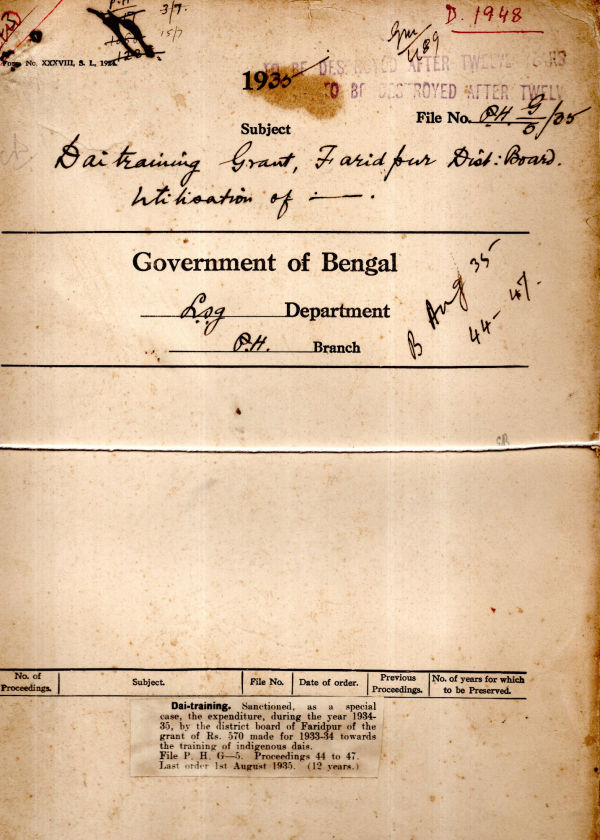 D. 1948
3/7.
15/7
Form No. XXVIII, S. L., 1924.
TO BE DESTROYED AFTER TWELVE YEARS
TO BE DESTROYED AFTER TWELV
1935
File No. P.H. G/5/35
Subject
Dai training Grant, Faridpur Dist: Board.
Utilisation of —.
Government of Bengal
L.s.g Department
P.H. Branch
B Aug 35
44-47.
No. of Proceedings.
Subject.
File No.
Date of order.
Previous Proceedings.
No. of years for which to be Preserved.
Dai-training. Sanctioned, as a special
case, the expenditure, during the year 1934-
35, by the district board of Faridpur of the
grant of Rs. 570 made for 1933-34 towards
the training of indigenous dais.
File P. H. G—5. Proceedings 44 to 47.
Last order 1st August 1935. (12 years.)